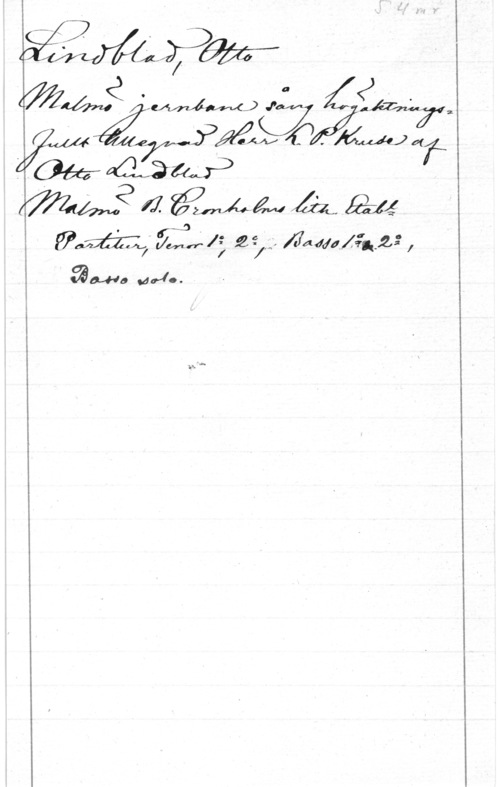 Lindblad, Otto
Malmö jernbane sång högaktnings-
fullt tillegnad Herr h. P. Kruse af
Otto Lindblad
Malmö B. Cronholms lith. Etabl.
Partitur, Tenor 1º, 2º, Basso 1º 2º,
Basso solo.